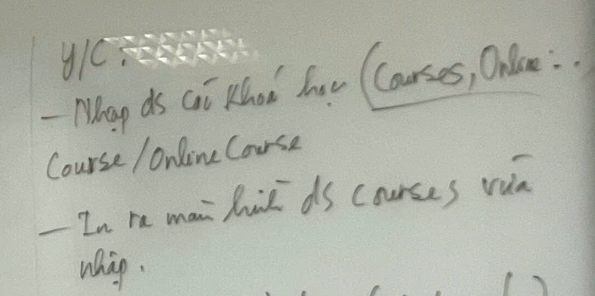 Y/C:
- Nhập ds các khoá học (Courses, Online...
Course/OnlineCourse
- In ra màn hình ds courses vừa
nhập.